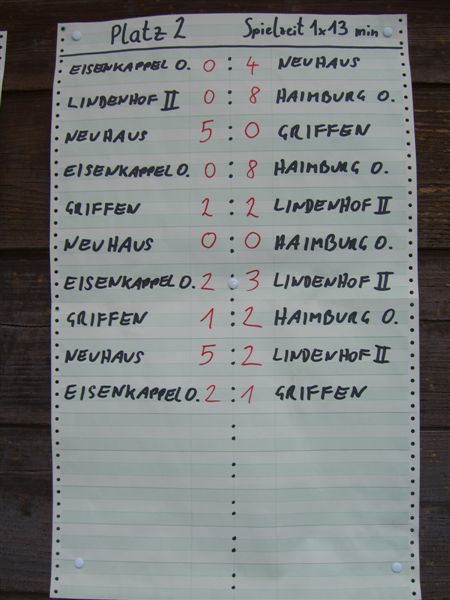 Platz 2 Spielzeit 1x13 min
EISENKAPPEL O. 0 : 4 NEUHAUS
LINDENHOF II 0 : 8 HAIMBURG O.
NEUHAUS 5 : 0 GRIFFEN
EISENKAPPEL O. 0 : 8 HAIMBURG O.
GRIFFEN 2 : 2 LINDENHOF II
NEUHAUS 0 : 0 HAIMBURG O.
EISENKAPPEL O. 2 : 3 LINDENHOF II
GRIFFEN 1 : 2 HAIMBURG O.
NEUHAUS 5 : 2 LINDENHOF II
EISENKAPPEL O. 2 : 1 GRIFFEN
:
:
:
:
: